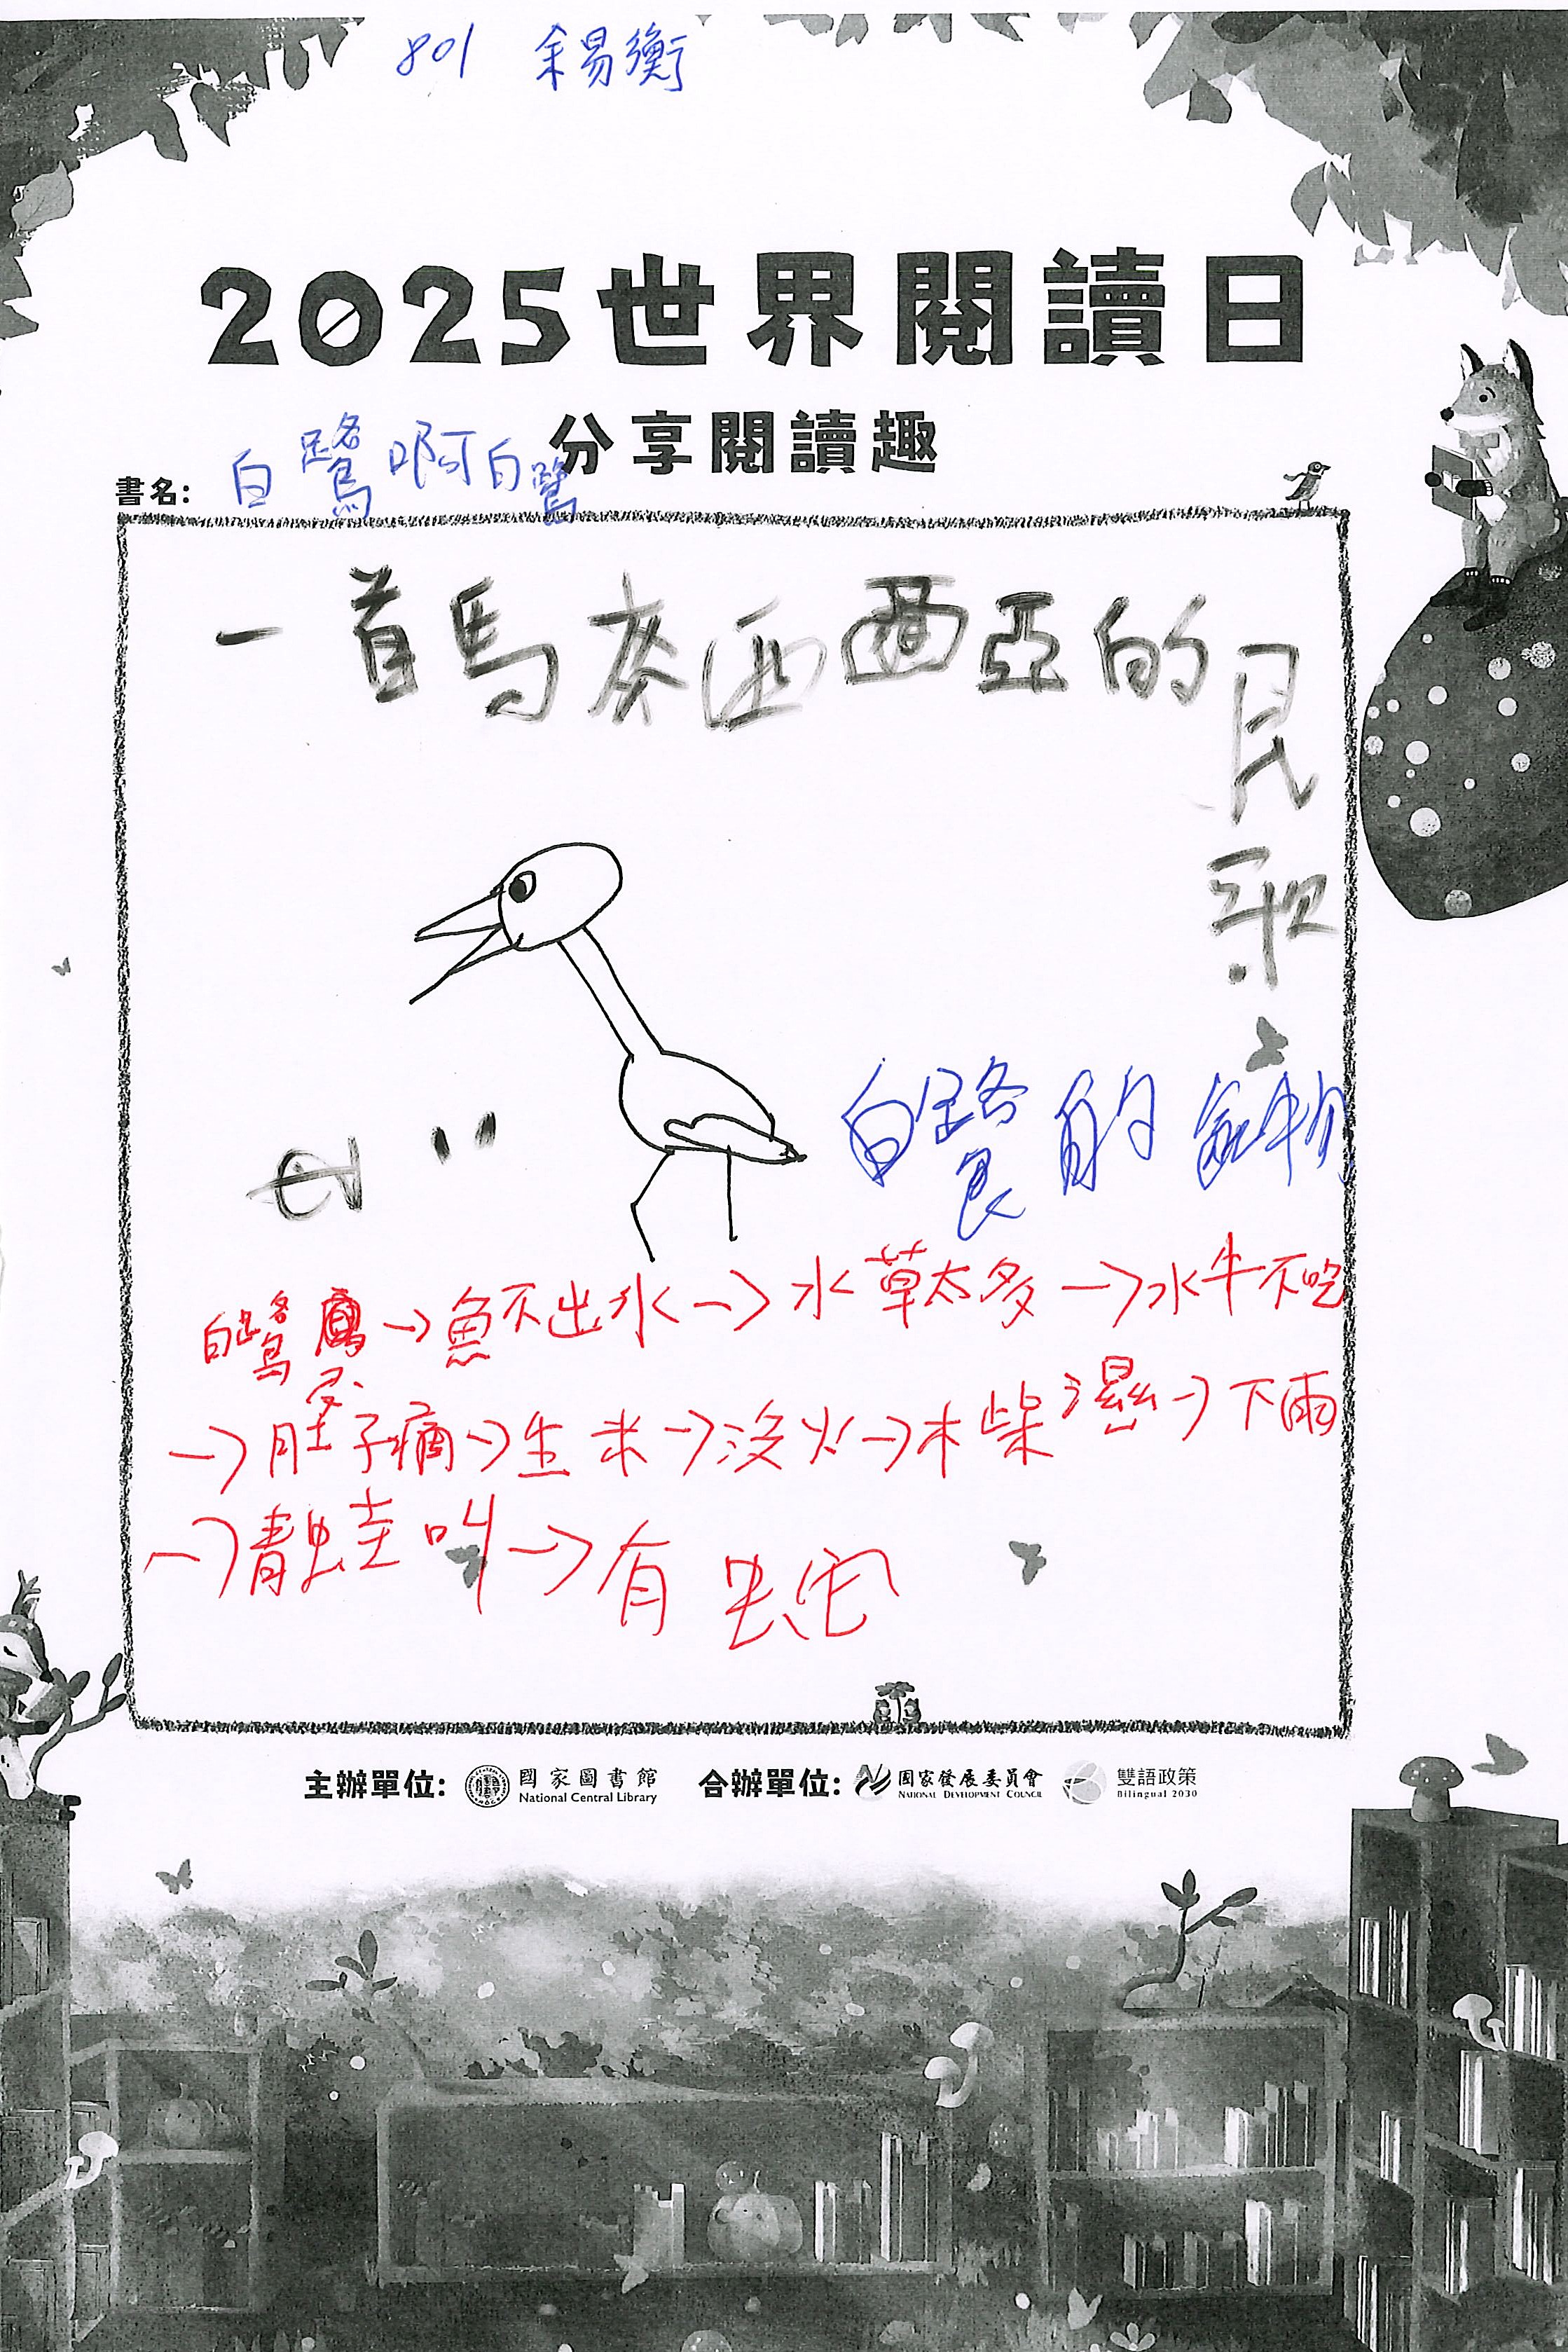 801 余易衡
2025世界閱讀日
分享閱讀趣
書名: 白鷺啊白鷺
一首馬來西亞的民歌
白鷺的食物
白鷺鷥→魚不出水→水草太多→水牛不吃
→肚子痛→生米→沒火→木柴濕→下雨
→青蛙叫→有蛇
主辦單位: 國家圖書館 National Central Library 合辦單位: 國家發展委員會 National Development Council 雙語政策 Bilingual 2030